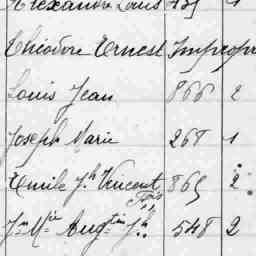 Alexandre Louis
Théodore Ernest Impropre
Louis Jean 866 2
Joseph Marie 268 1
Emile Jh Vincent 869 2
Jn Mie Augtin Jh 548 2